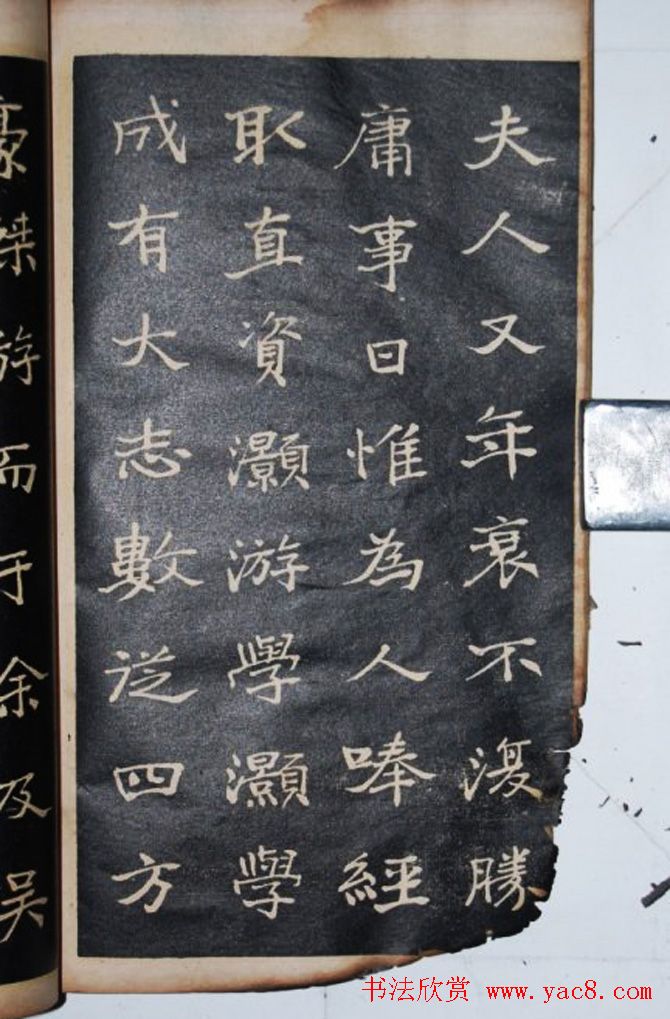 夫人又年衰不復勝
庸事日惟為人唪經
取直資灝游學灝學
成有大志數從四方
豪桀游而于余及吴
书法欣赏 www.yac8.com